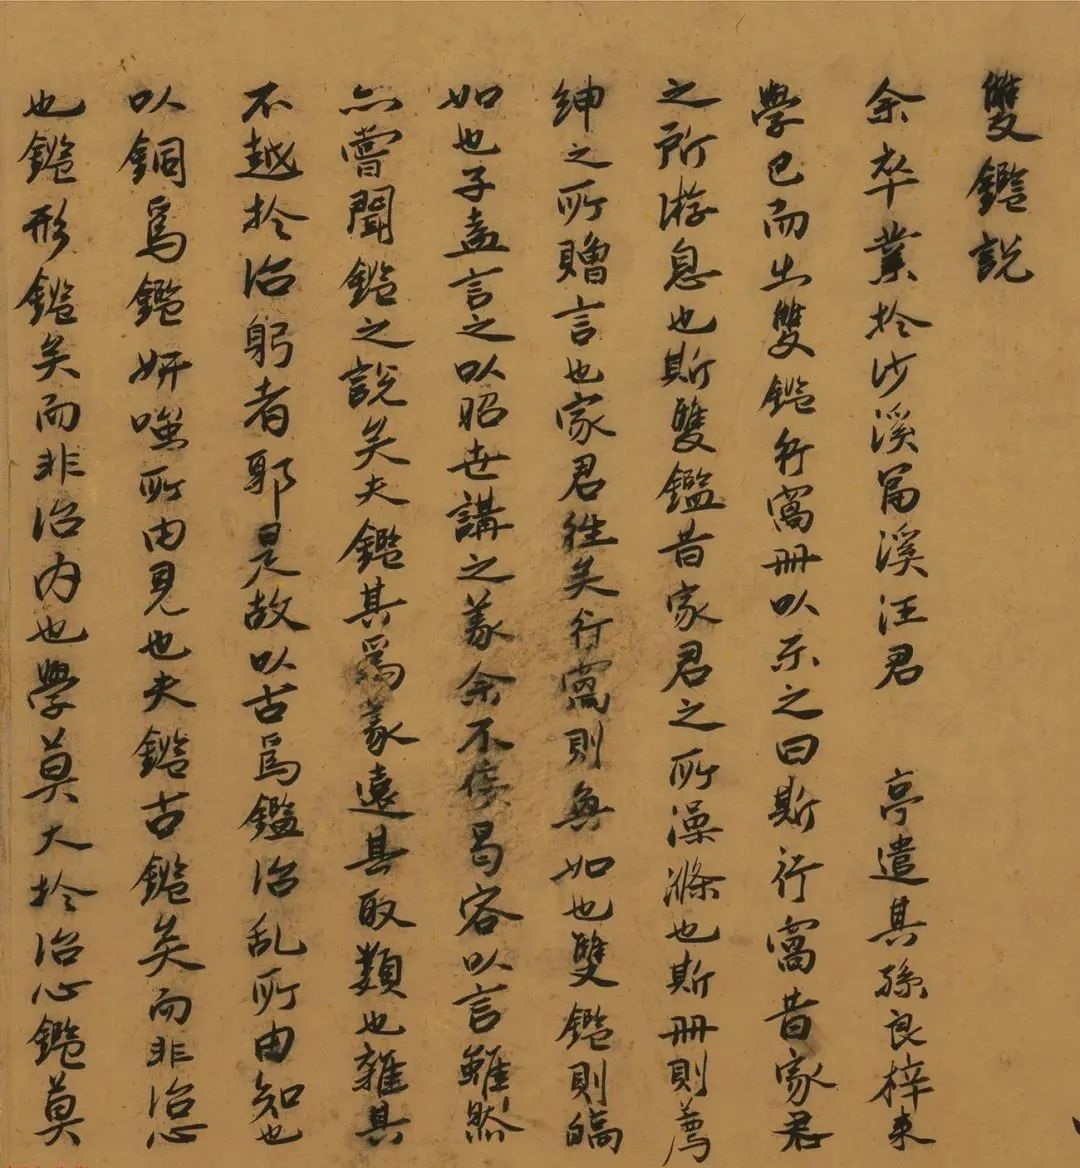 雙鑑說
余卒業於沙溪富溪汪君 亭遣其孫良梓來
學已而出雙鑑行窩冊以示之曰斯行窩昔家君
之所游息也斯雙鑑昔家君之所澡滌也斯冊則薦
紳之所贈言也家君徃矣行窩則無如也雙鑑則皜
如也子盍言之以昭世講之義余不佞曷容以言雖然
亦嘗聞鑑之說矣夫鑑其爲義遠其取類也雜其
不越於治躬者耶是故以古爲鑑治乱所由知也
以銅爲鑑妍媸所由見也夫鑑古鑑矣而非治
也鑑形鑑矣而非治內也學莫大於治心鑑莫